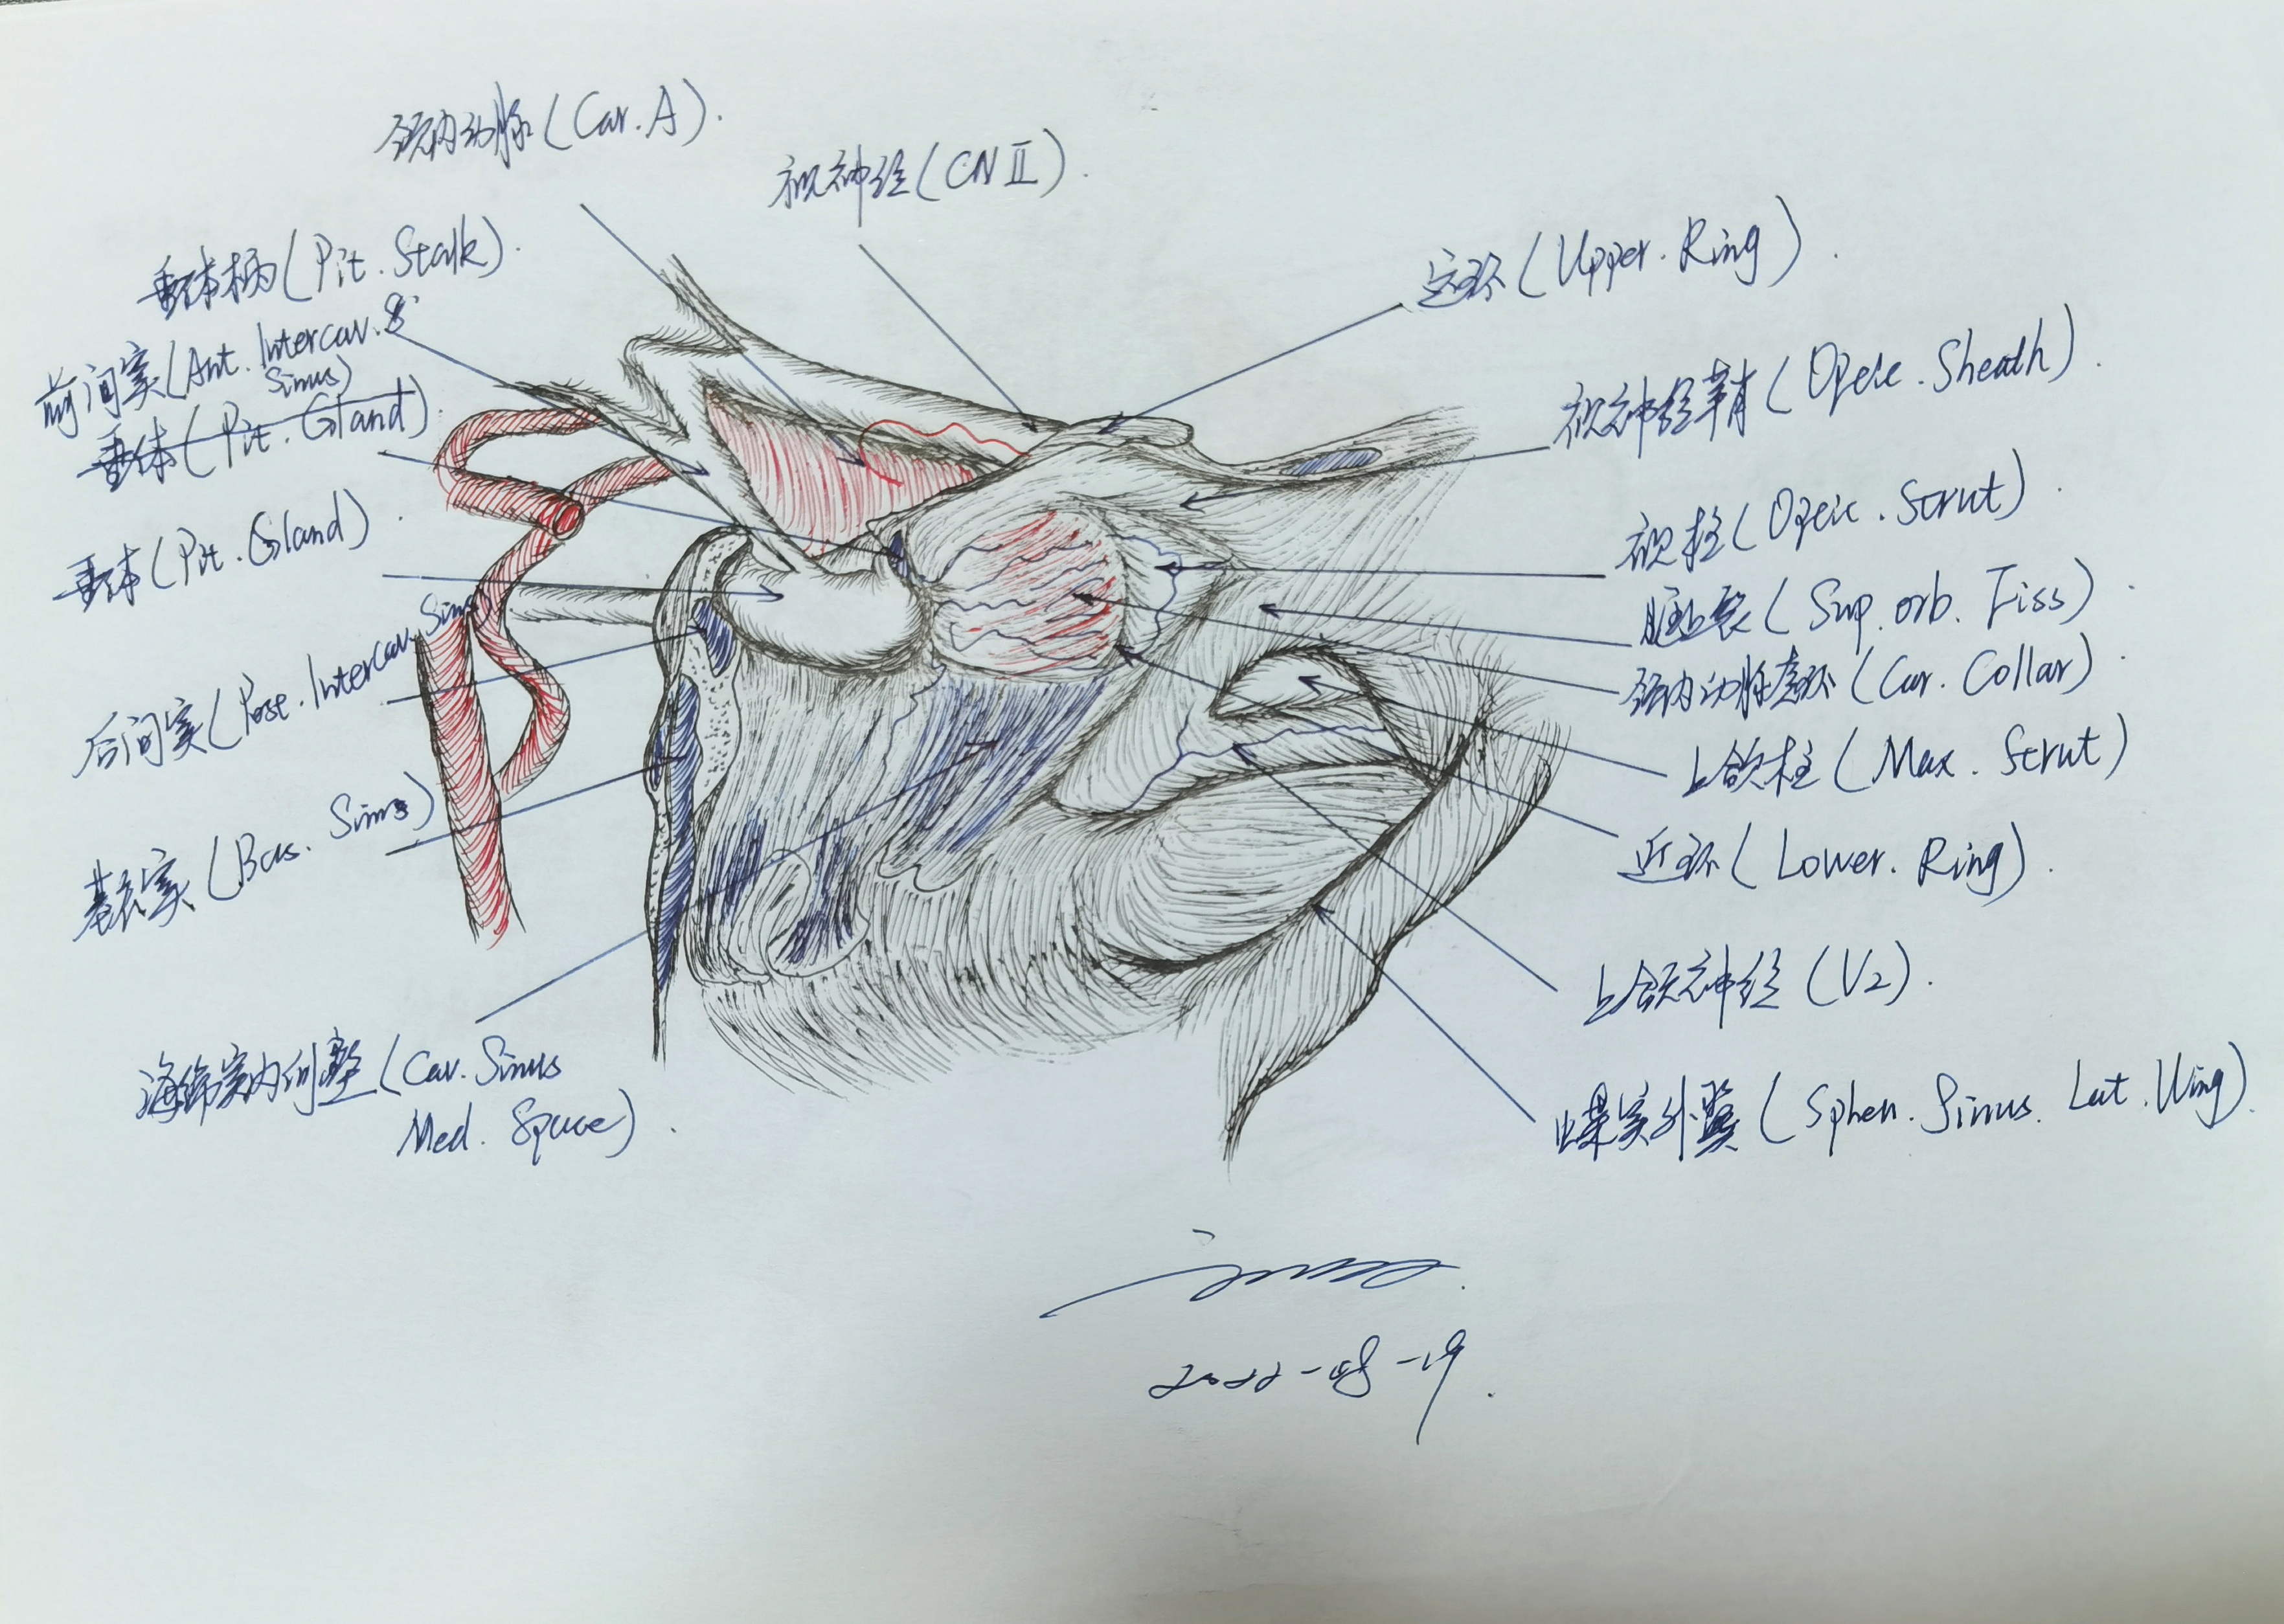 颈内动脉(Car.A).
视神经(CNⅡ).
垂体柄(Pit.Stalk).
前间窦(Ant.Intercav.
Sinus)
垂体(Pit.Gland).
垂体(Pit.Gland).
后间窦(Post.Intercav.Sinus)
基底窦(Bas.Sinus)
海绵窦内侧壁(Cav.Sinus
Med.Space).
远环(Upper.Ring).
视神经鞘(Opeic.Sheath).
视柱(Opeic.Strut).
眶上裂(Sup.orb.Fiss).
颈内动脉袁环(Car.Collar).
上颌柱(Max.Strut)
近环(Lower.Ring).
上颌神经(V2).
蝶窦外翼(Sphen.Sinus.Lat.Wing).
2022-08-19.